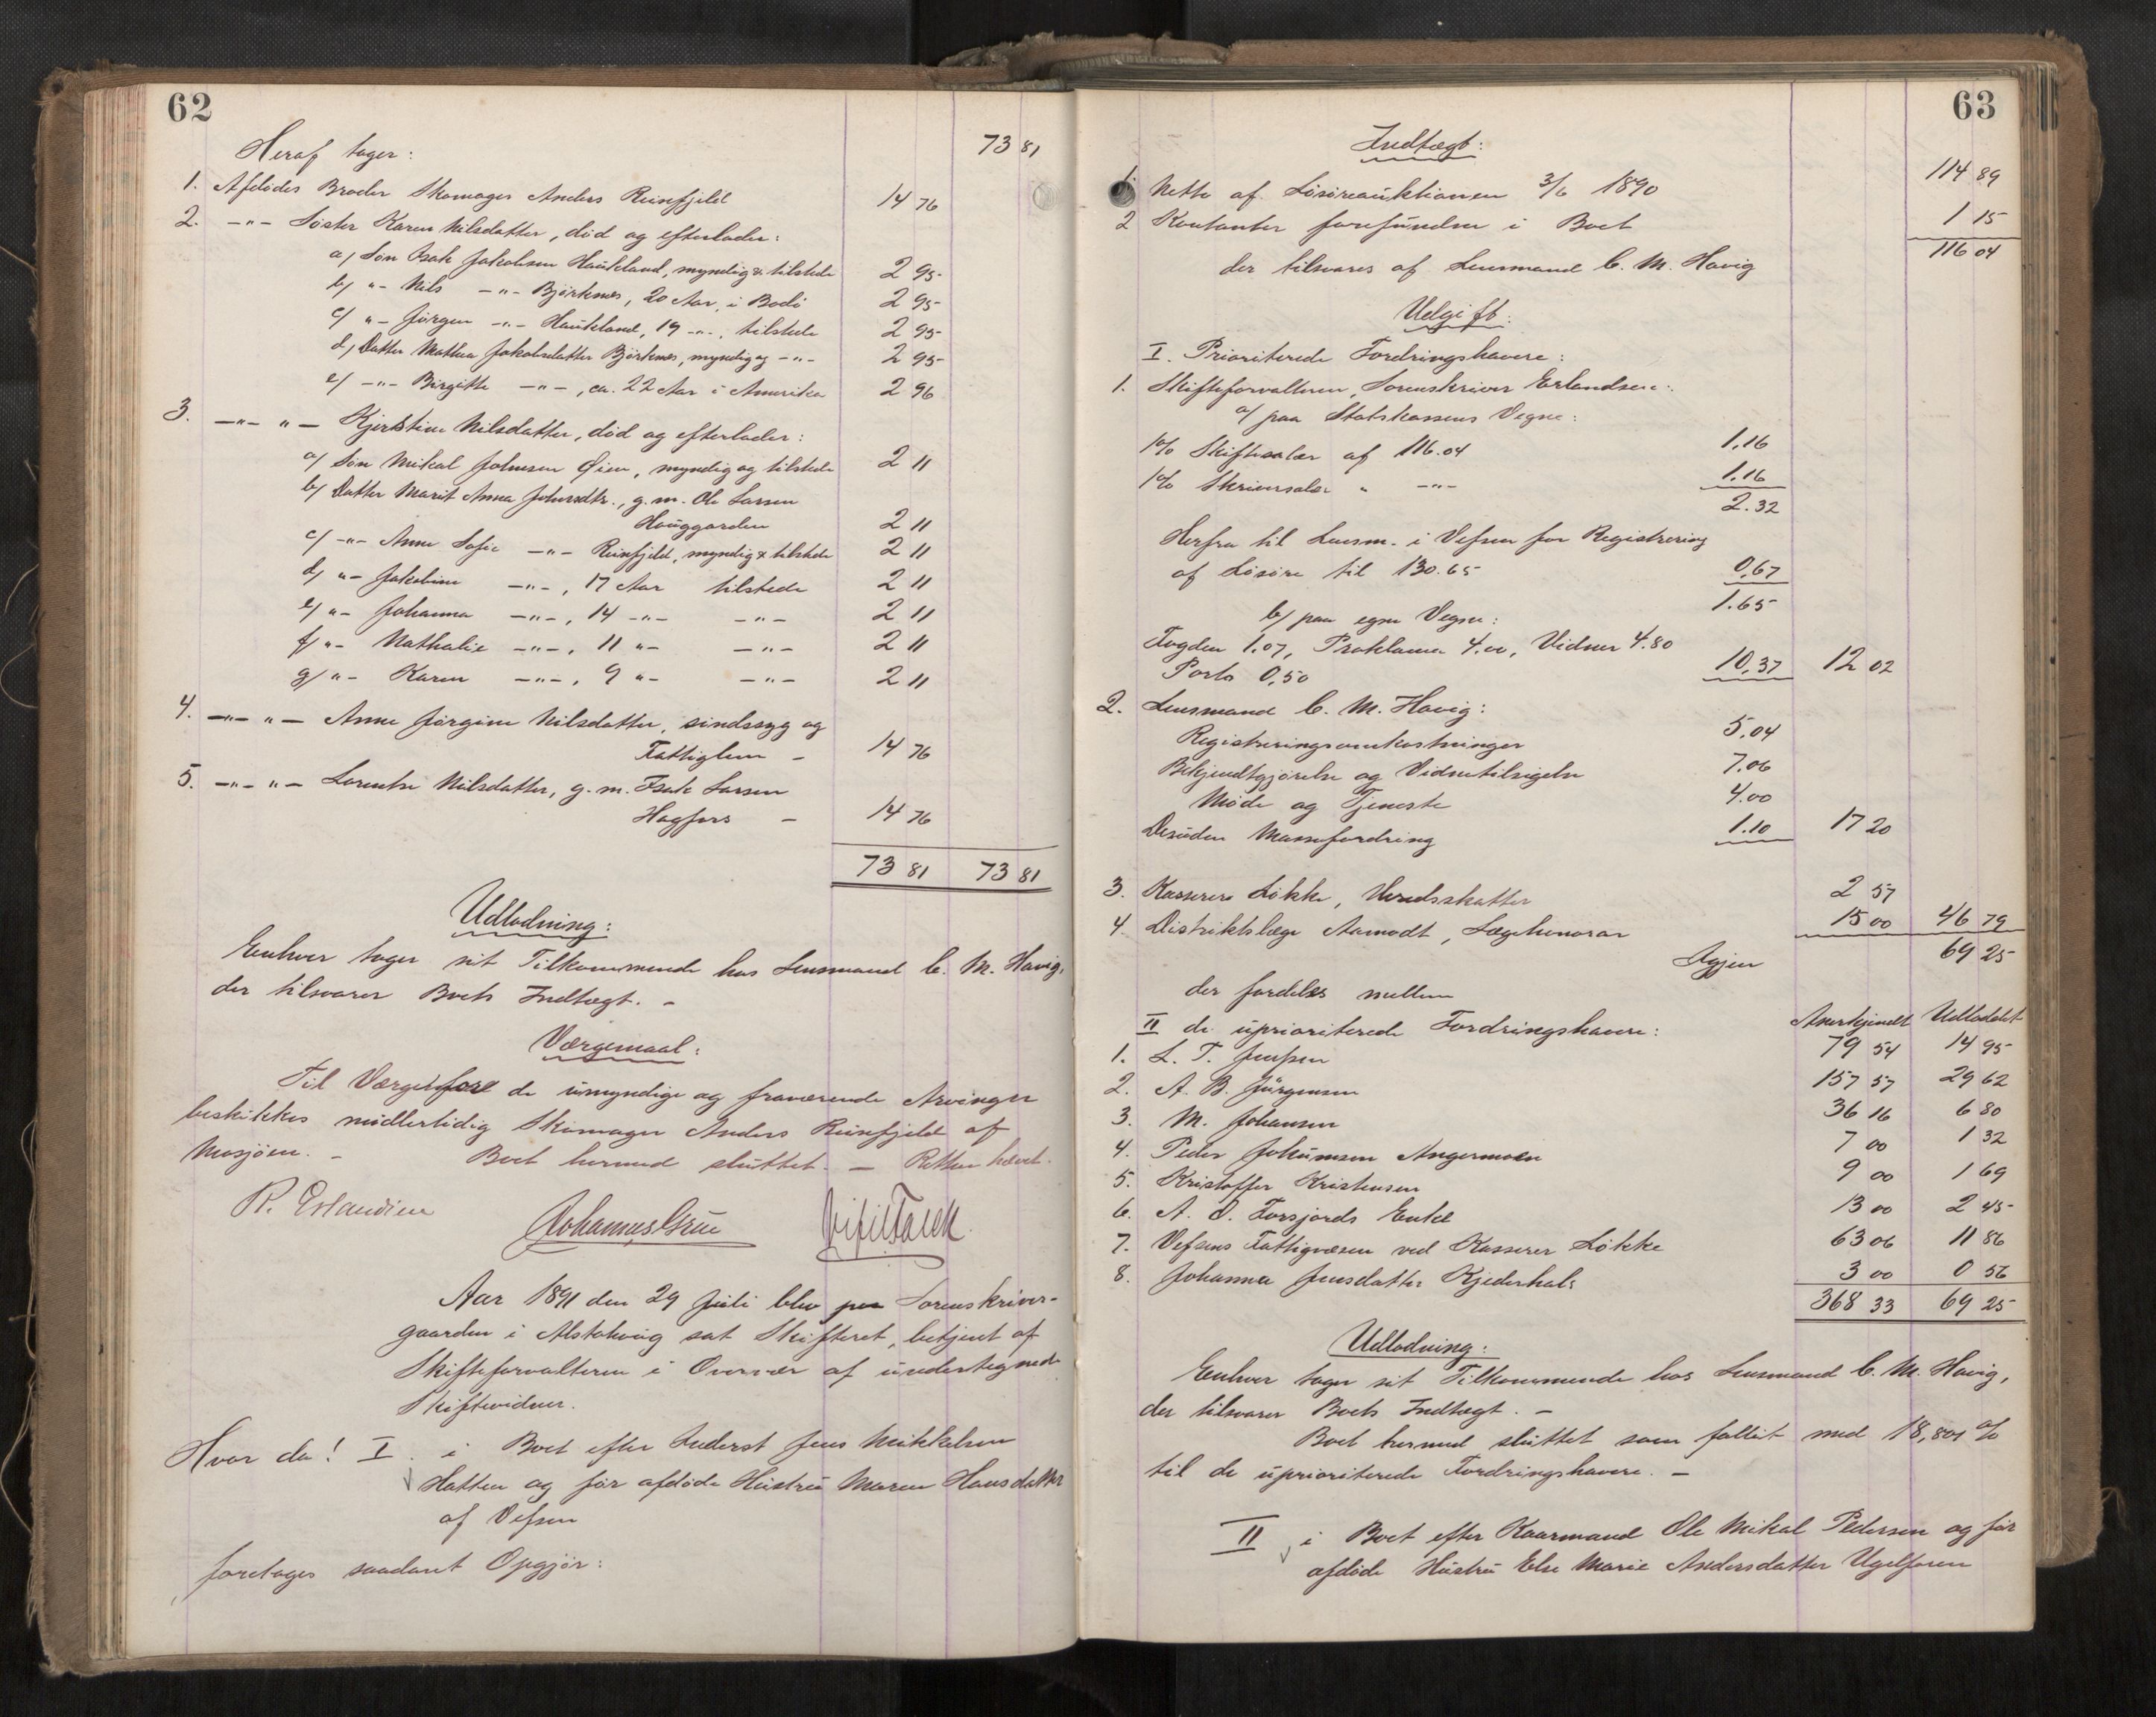 62
Heraf tager: 73 81
1. Afdødes Broder Skomager Anders Reinfjeld 14 76
2. -"- Søster Karen Nilsdatter, død og efterlader:
a/ Søn Isak Jakobsen Haukland, myndig & tilstede 2 95
b/ "- Nils -"- Bjørknes, 20 Aar, i Bodø 2 95
c/ "- Jørgen -"- Haukland, 19 -"-, tilstede 2 95
d/ Datter Mathea Jakobsdatter Bjørknes, myndig og -"- 2 95
e/ -"- Birgitte -"-, ca. 22 Aar i Amerika 2 96
3. -"- "- Kjerstine Nilsdatter, død og efterlader:
a/ Søn Mikal Johnsen Øien, myndig og tilstede 2 11
b/ Datter Marit Anna Johnsdtr., g. m. Ole Larsen
Hauggarden 2 11
c/ -"- Anne Sofie -"- Reinfjeld, myndig & tilstede 2 11
d/ "- Jakobine -"-, 17 Aar tilstede 2 11
e/ "- Johanna -"-, 14 -"- -"- 2 11
f/ "- Nathalie -"-, 11 "- -"- 2 11
g/ "- Karen -"-, 9 "- -"- 2 11
4. -"- "- Anne Jørgine Nilsdatter, sindssyg og
Fattiglem - 14 76
5. -"- "- Lorentse Nilsdatter, g. m. Isak Larsen
Hagfors - 14 76
73 81 73 81
Udlodning:
Enhver tager sit Tilkommende hos Lensmand C. M. Havig,
der tilsvarer Boets Indtægt. -
Værgemaal:
Til Værge for de umyndige og fraværende Arvinger
beskikkes midlertidig Skomager Anders Reinfjeld af
Mosjøen. - Boet hermed sluttet. - Retten hævet.
R. Erlandsen Johannes Grue
Aar 1891 den 29 Juli blev paa Sorenskriver-
gaarden i Alstahaug sat Skifteret, betjent af
Skifteforvalteren i Overvær af undertegnede
Skiftevidner.
Hvor da! I. i Boet efter Inderst Jens Mikkelsen
Hatten og før afdøde Hustru Maren Hansdatter
af Vefsen
foretages saadant Opgjør:
63
Indtægt:
1. Netto af Løsøreauktionen 3/6 1890 114 89
2 Kontanter forefunden i Boet 1 15
der tilsvares af Lensmand C. M. Havig 116 04
Udgift:
I. Prioriterede Fordringshavere:
1. Skifteforvalteren, Sorenskriver Erlandsen:
a/ paa Statskassens Vegne:
1 % Skiftesalær af 116.04 1.16
1 % Skriversalær " -"- 1.16
2.32
Herfra til Lensm. i Vefsen for Registrering
af Løsøre til 130.65 0,67
1.65
b/ paa egne Vegne:
Fogden 1.07, Proklama 4.00, Vidner 4.80
Porto 0,50 10,37 12 02
2. Lensmand C. M. Havig:
Registreringsomkostninger 5.04
Bekjendtgjørelse og Vidnetilsigelse 7.06
Møde og Tjeneste 4.00
Desuden Massefordring 1.10 17 20
3. Kasserer Løkke, Herredsskatter 2 57
4. Distriktslæge Aamodt, Lægehonorar 15 00 46 79
Igjen 69 25
der fordeles mellem
II de uprioriterede Fordringshavere: Anerkjendt Udloddet
1. L. T. Jenssen 79 54 14 95
2. A. B. Jürgensen 157 57 29 62
3. M. Johansen 36 16 6 80
4. Peder Johansen Angermoen 7 00 1 32
5. Kristoffer Kristensen 9 00 1 69
6. A. O. Forsjords Enke 13 00 2 45
7. Vefsens Fattigvæsen ved Kasserer Løkke 63 06 11 86
8. Johanna Jensdatter Kjederhals 3 00 0 56
368 33 69 25
Udlodning:
Enhver tager sit Tilkommende hos Lensmand C. M. Havig,
der tilsvarer Boets Indtægt. -
Boet hermed sluttet som fallit med 18,801 %
til de uprioriterede Fordringshavere. -
II i Boet efter Kaarmand Ole Mikal Pedersen og før
afdøde Hustru Else Marie Andersdatter Ugelforen